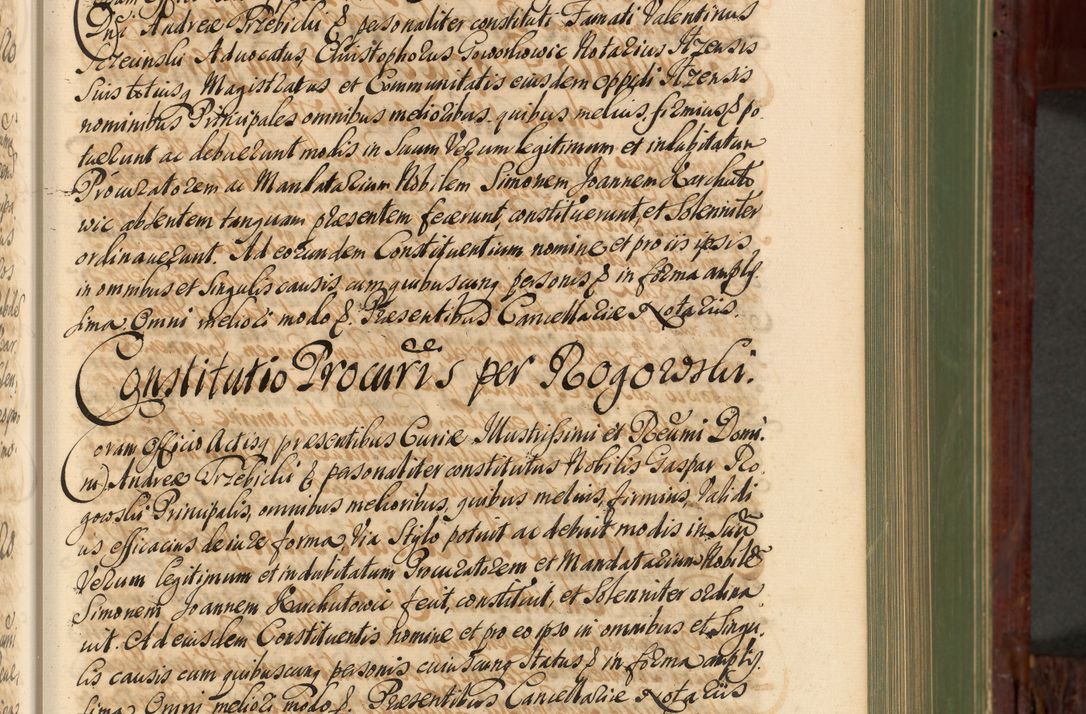 Dni Andreæ Trzebicki & personaliter constituti Famati Valentinus
Advocatus, Christophorus Notarius Ilzensis
suis totiusq Magistratus et Communitatis eiusdem oppidi Ilzensis
nominibus Principales omnibus melioribus. quibus melius, firmius & po
tuerunt ac debuerunt modis in Suum Verum legitimum et indubitatum
Procuratorem ac Mandatarium Nobilem Simonem Joannem Karchuto
wic absentem tanquam præsentem fecerunt, constituerunt, et Solenniter
ordinaverunt. Ad eorundem Constituentium nomine et pro iis ipsis
in omnibus et Singulis causis, cum quibuscunq personis & in forma amplis
sima. Omni meliori modo &. Præsentibus Cancellariæ Notariis.
Constitutio Procuris per Rogowski.
Coram Officio Actisq præsentibus Curiæ Illustrissimi et Reumi Domi.
ni Andreæ Trzebicki & personaliter constitutus Nobilis Gaspar Ro.
gowski Principalis, omnibus melioribus, quibus melius, firmius, Validi
us efficacius de iure forma, Via Stylo potuit ac debuit modis in Suu
Verum legitimum et indubitatum Procuratorem et Mandatarium Nobile
Simonem Joannem Karchutowic fecit, constituit, et Solenniter ordina
uit. Ad eiusdem Constituentis nomine et pro eo ipso in omnibus et Singu.
lis causis cum quibuscunq personis cuiuscunq Status & in forma amplis
sima Omni meliori modo & Præsentibus Cancellariæ Notariis